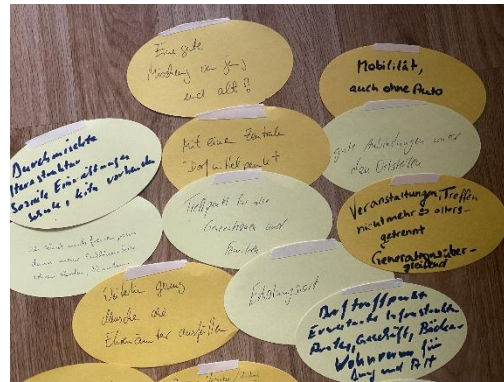 Eine gute
Mischung von jung
und alt!!
Mobilität,
auch ohne Auto
Durchmischte
Altersstruktur
Soziale Einrichtungen
Schule, Kita vorhanden
Mit einem Zentralen
Dorfmittelpunkt
gute Anbindungen unter
den Ortsteilen
Treffpunkt für alle
Generationen und
Familien
Veranstaltungen, Treffen
nicht mehr so alters-
getrennt
Generationsüber-
greifend
Weiterhin genug
Menschen die
Ehrenämter ausfüllen
Erholungsort
Dorftreffpunkt
Erweiterte Infrastruktur
Ärztes, Geschäft, Bäcker
Wohnraum für
Jung und Alt